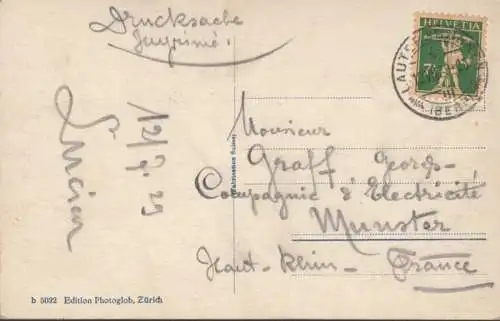 Drucksache
Imprimé.
HELVETIA
7½
LAUTE
(BERN)
12/7.29
Lucien
Monsieur
Graff Georges
Compagnie d'Electricité
Munster
Haut-Rhin -
France
b 5022 Edition Photoglob, Zürich